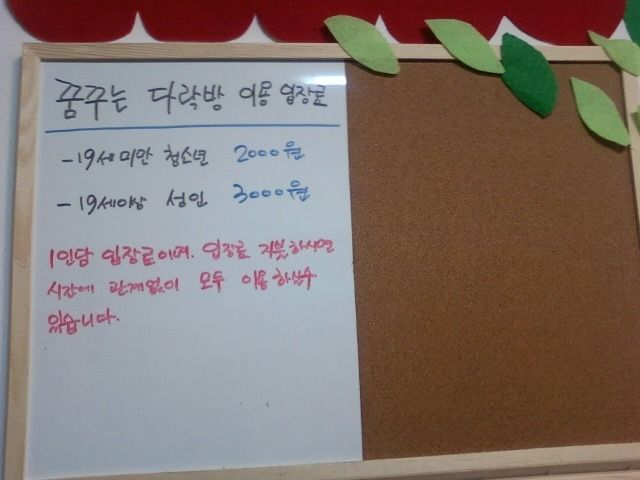 꿈꾸는 다락방 이용 입장료
-19세 미만 청소년 2000원
-19세이상 성인 3000원
1인당 입장료이며. 입장료 지불하시면
시간에 관계없이 모두 이용하실수
있습니다.